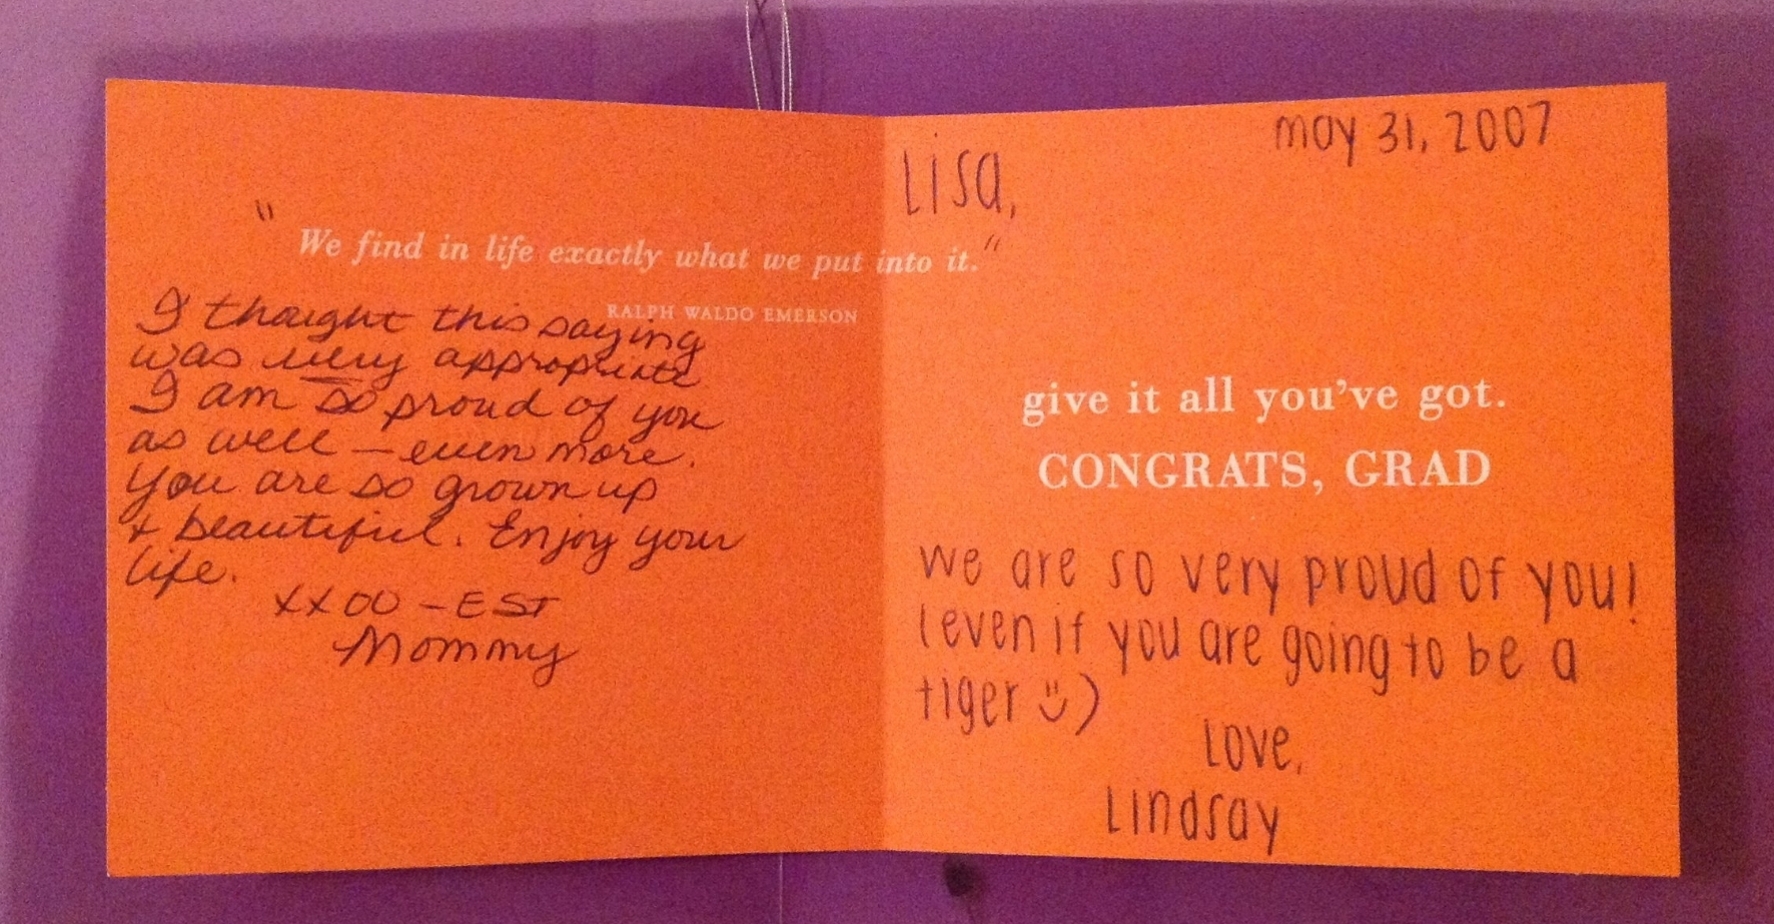 " We find in life exactly what we put into it."
RALPH WALDO EMERSON
I thought this saying
was very appropriate
I am so proud of you
as well – even more.
You are so grown up
+ beautiful. Enjoy your
life.
XXOO – EST
Mommy
may 31, 2007
Lisa,
give it all you've got.
CONGRATS, GRAD
we are so very proud of you!
(even if you are going to be a
tiger ☺)
Love,
Lindsay